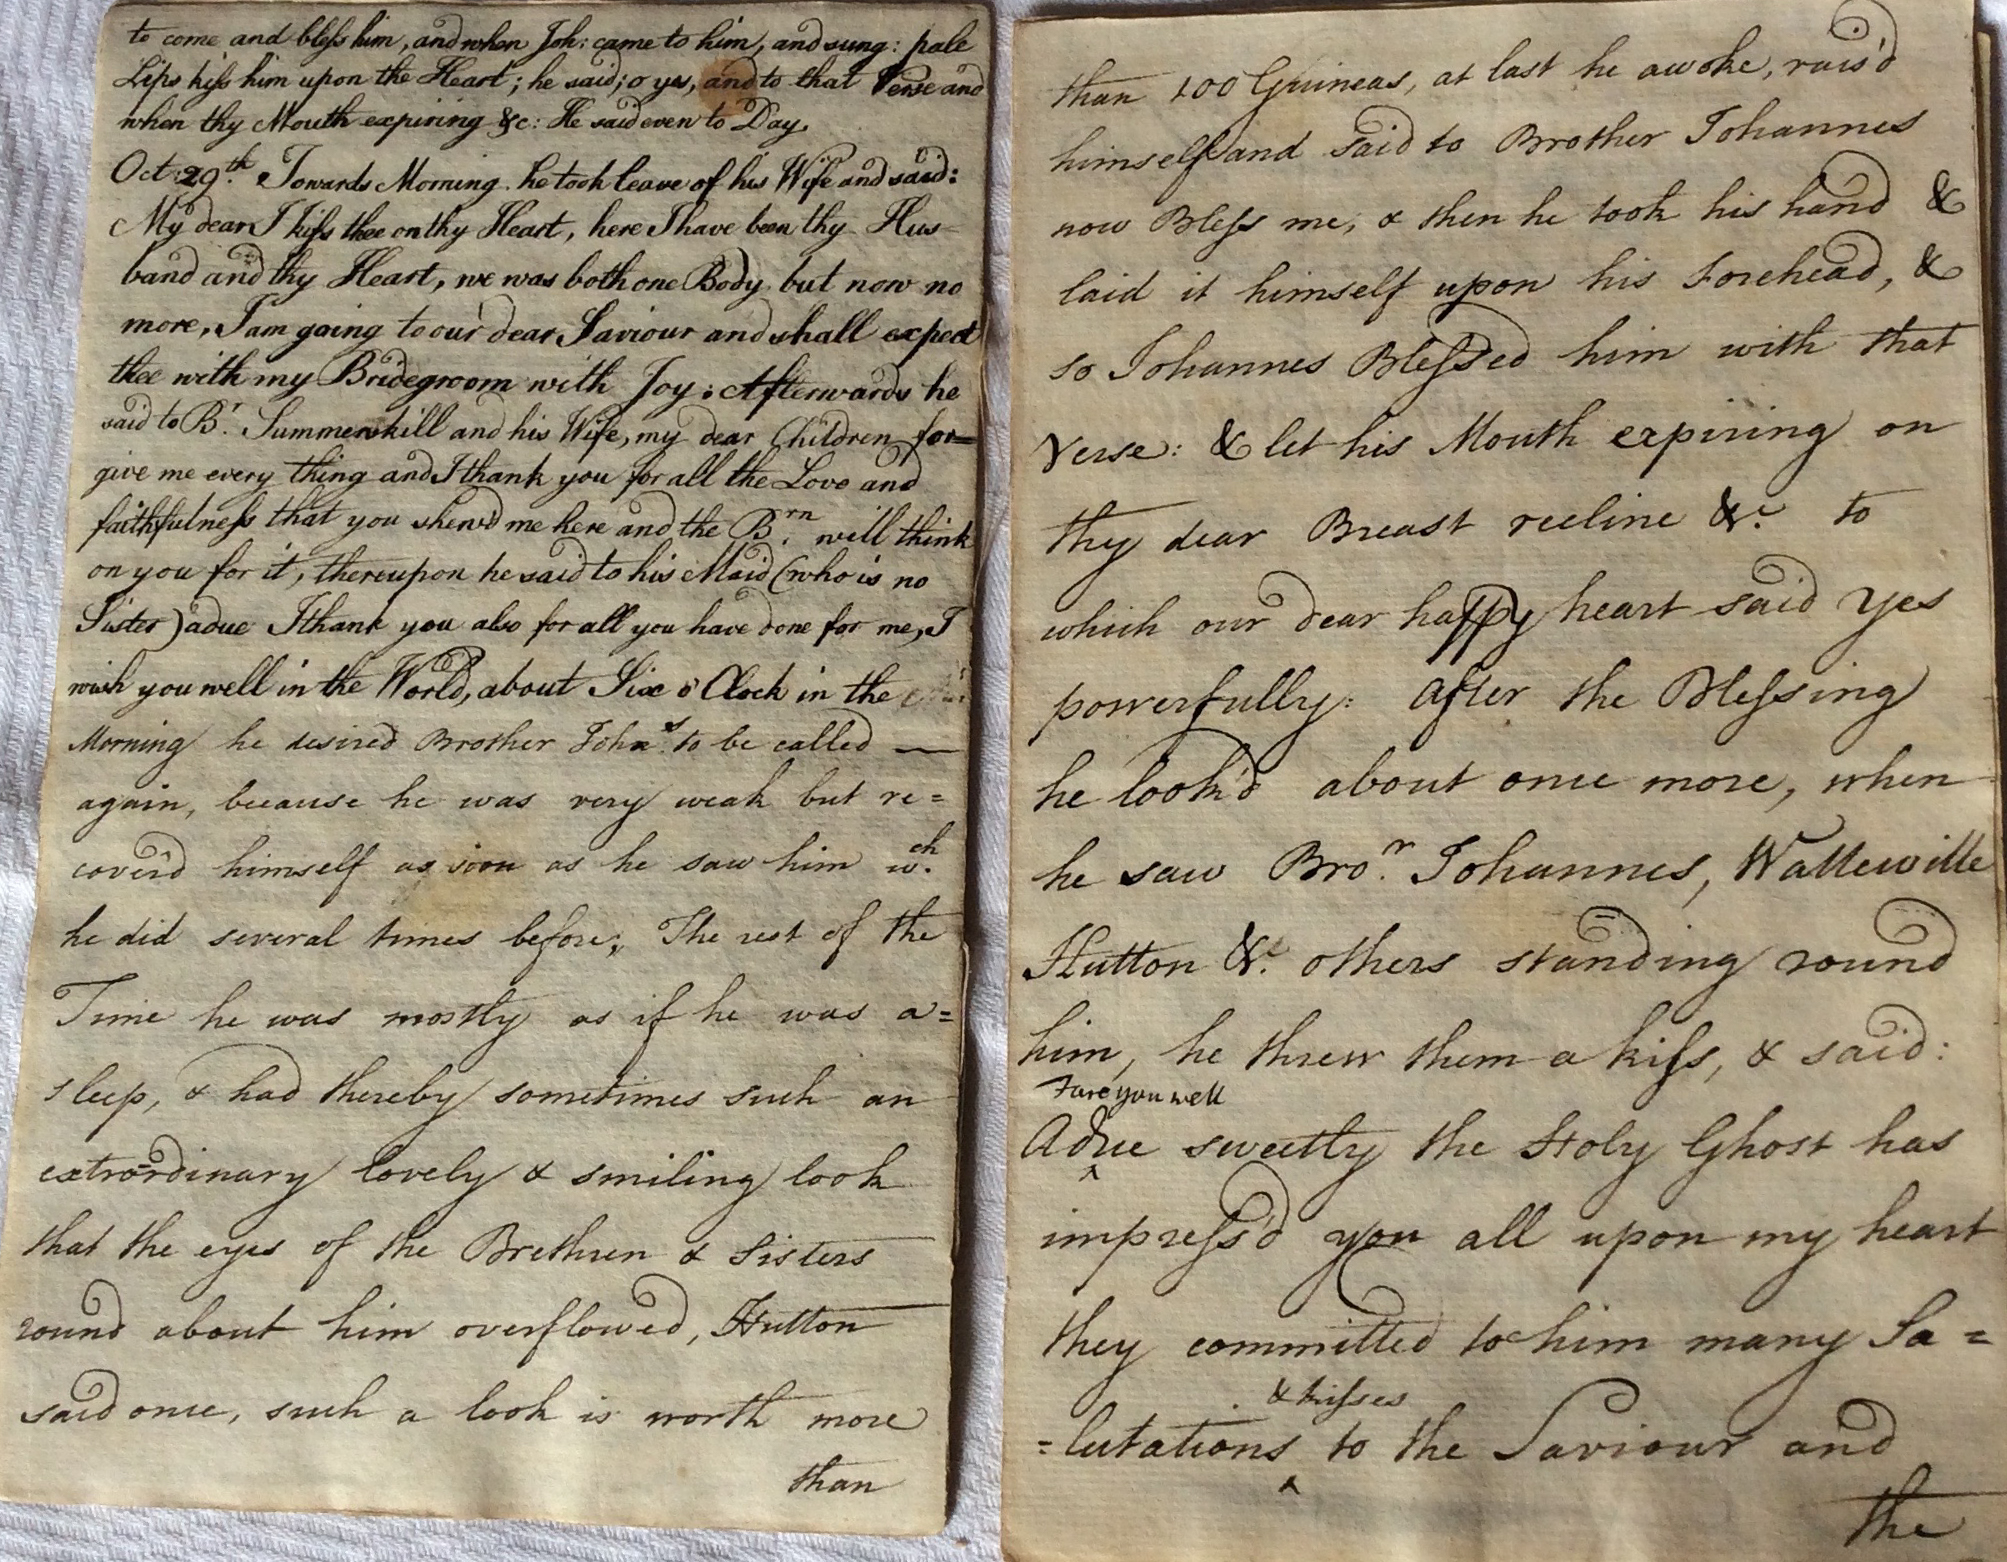 to come and bless him, and when Joh: came to him, and sung: pale
Lips kiss him upon the Heart; he said; o yes, and to that Verse and
when thy Mouth expiring &c: He said even to Day.
Oct: 29th. Towards Morning he took leave of his Wife and said:
My dear I kiss thee on thy Heart, here I have been thy Hus-
band and thy Heart, we was both one Body but now no
more, I am going to our dear Saviour and shall expect
thee with my Bridegroom with Joy: Afterwards he
said to Br. Summerskill and his Wife, my dear Children for=
give me every thing and I thank you for all the Love and
faithfulness that you shew'd me here and the Brn. will think
on you for it, thereupon he said to his Maid (who is no
Sister) adue I thank you also for all you have done for me, I
wish you well in the World, about Six o'Clock in the
Morning he desired Brother Johas. to be called —
again, because he was very weak but re=
cover'd himself as soon as he saw him wch.
he did several times before; The rest of the
Time he was mostly as if he was a=
sleep, & had thereby sometimes such an
extrordinary lovely & smiling look
that the eyes of the Brethren & Sisters
round about him overflowed, Hutton
said once, such a look is worth more
than
than 100 Guineas, at last he awoke, rais'd
himself and said to Brother Iohannes
now Bless me, & then he took his hand &
laid it himself upon his Forehead, &
so Iohannes Blessed him with that
Verse: & let his Mouth expiring on
thy dear Breast recline &c to
which our dear happy heart said yes
powerfully: after the Blessing
he look'd about once more, when
he saw Bror. Iohannes, Watteville
Hutton &c. others standing round
him, he threw them a kiss, & said:
Fare you well
Adue sweetly the Holy Ghost has
impress'd you all upon my heart
they committed to him many Sa=
& kisses
=lutations to the Saviour and
the